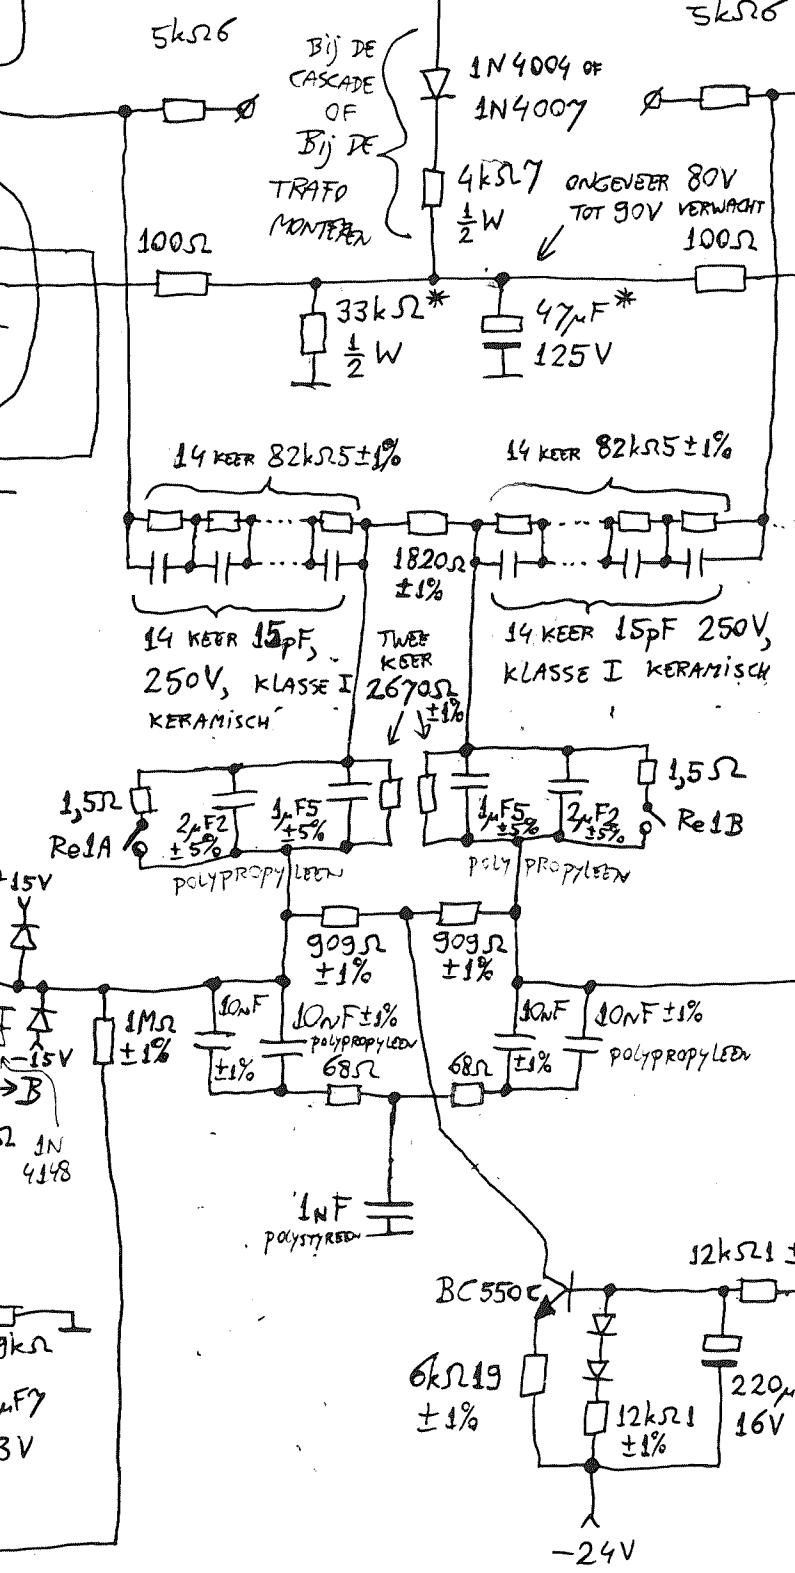 5kΩ6
5kΩ6
Bij DE
CASCADE
OF
Bij DE
TRAFO
MONTEREN
1N4004 OF
1N4007
4kΩ7
1/2 W
ONGEVEER 80V
TOT 90V VERWACHT
100Ω
100Ω
33kΩ*
1/2 W
47µF*
125V
14 KEER 82kΩ5±1%
14 KEER 82kΩ5±1%
1820Ω
±1%
14 KEER 15pF,
250V, KLASSE I
KERAMISCH
14 KEER 15pF 250V,
KLASSE I KERAMISCH
TWEE
KEER
2670Ω
±1%
1,5Ω
Re1A
2µF2
±5%
1µF5
±5%
POLYPROPYLEEN
1µF5
±5%
2µF2
±5%
POLYPROPYLEEN
1,5Ω
Re1B
+15V
909Ω
±1%
909Ω
±1%
1MΩ
±1%
-15V
→B
1N
4148
10nF
±1%
10nF±1%
POLYPROPYLEEN
68Ω
68Ω
10nF
±1%
10nF±1%
POLYPROPYLEEN
1nF
POLYSTYREEN
BC550C
12kΩ1 ±
6kΩ19
±1%
12kΩ1
±1%
220µ
16V
9kΩ
µF7
3V
-24V